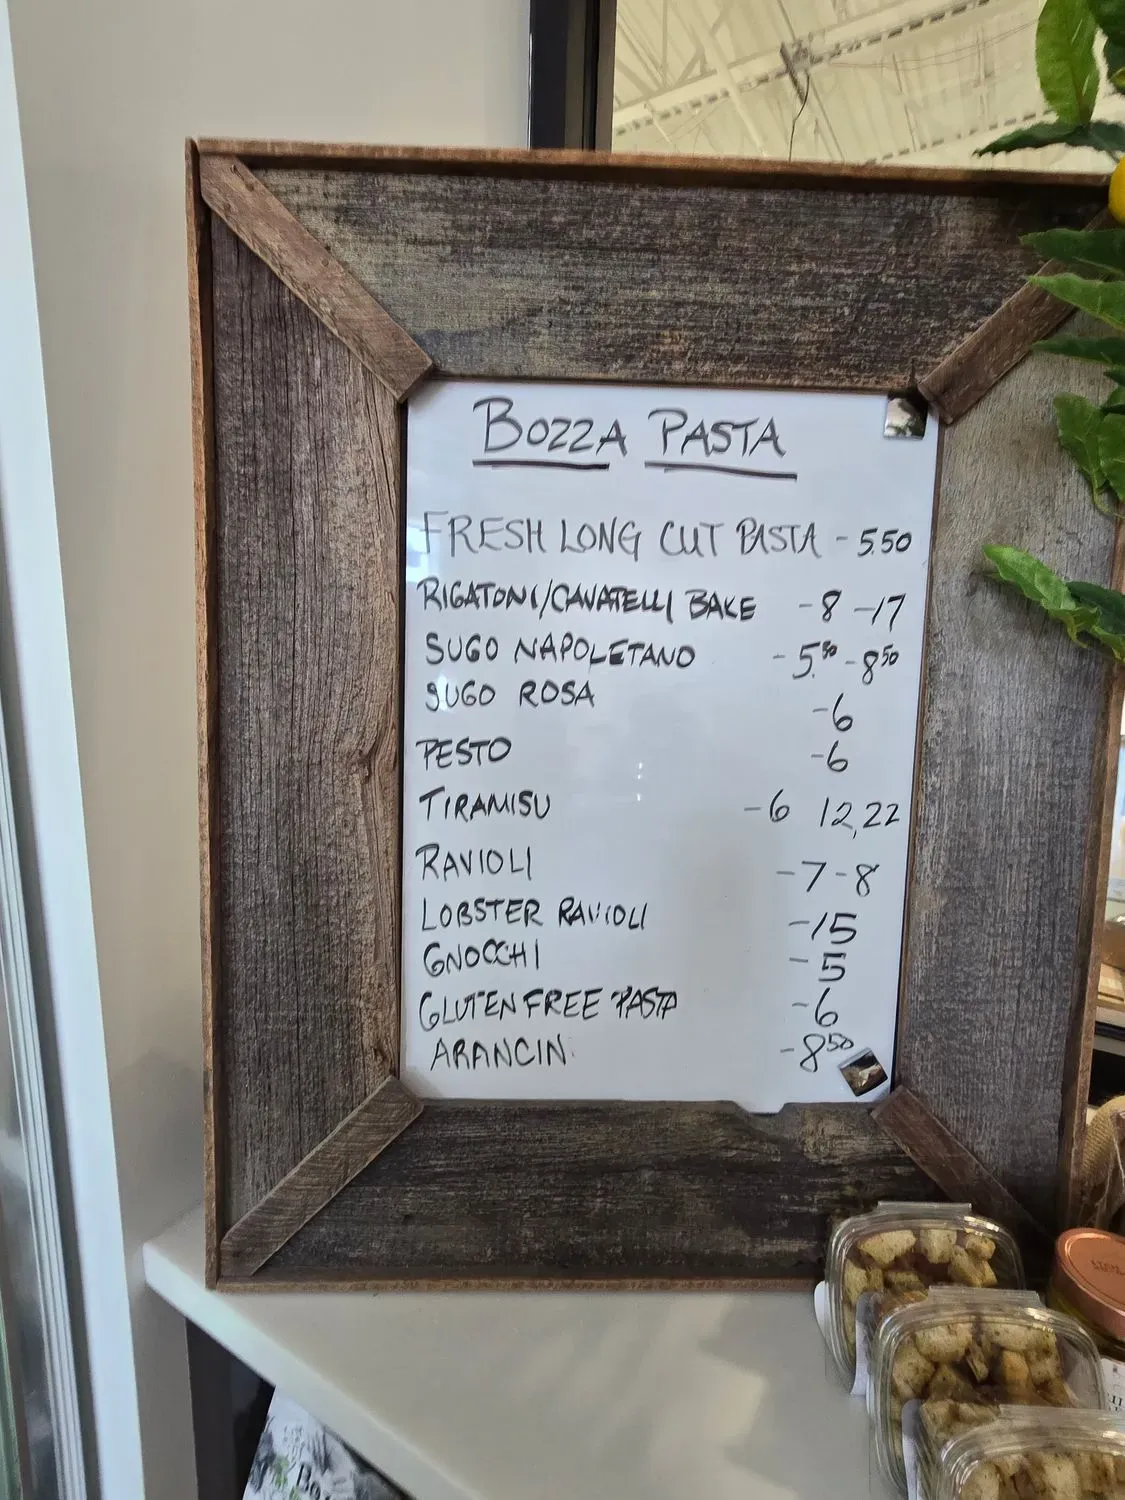 BOZZA PASTA
FRESH LONG CUT PASTA - 5.50
RIGATONI/CAVATELLI BAKE - 8 - 17
SUGO NAPOLETANO - 5.50 - 8 50
SUGO ROSA - 6
PESTO - 6
TIRAMISU - 6 12,22
RAVIOLI - 7 - 8
LOBSTER RAVIOLI - 15
GNOCCHI - 5
GLUTEN FREE PASTA - 6
ARANCINI - 8 50